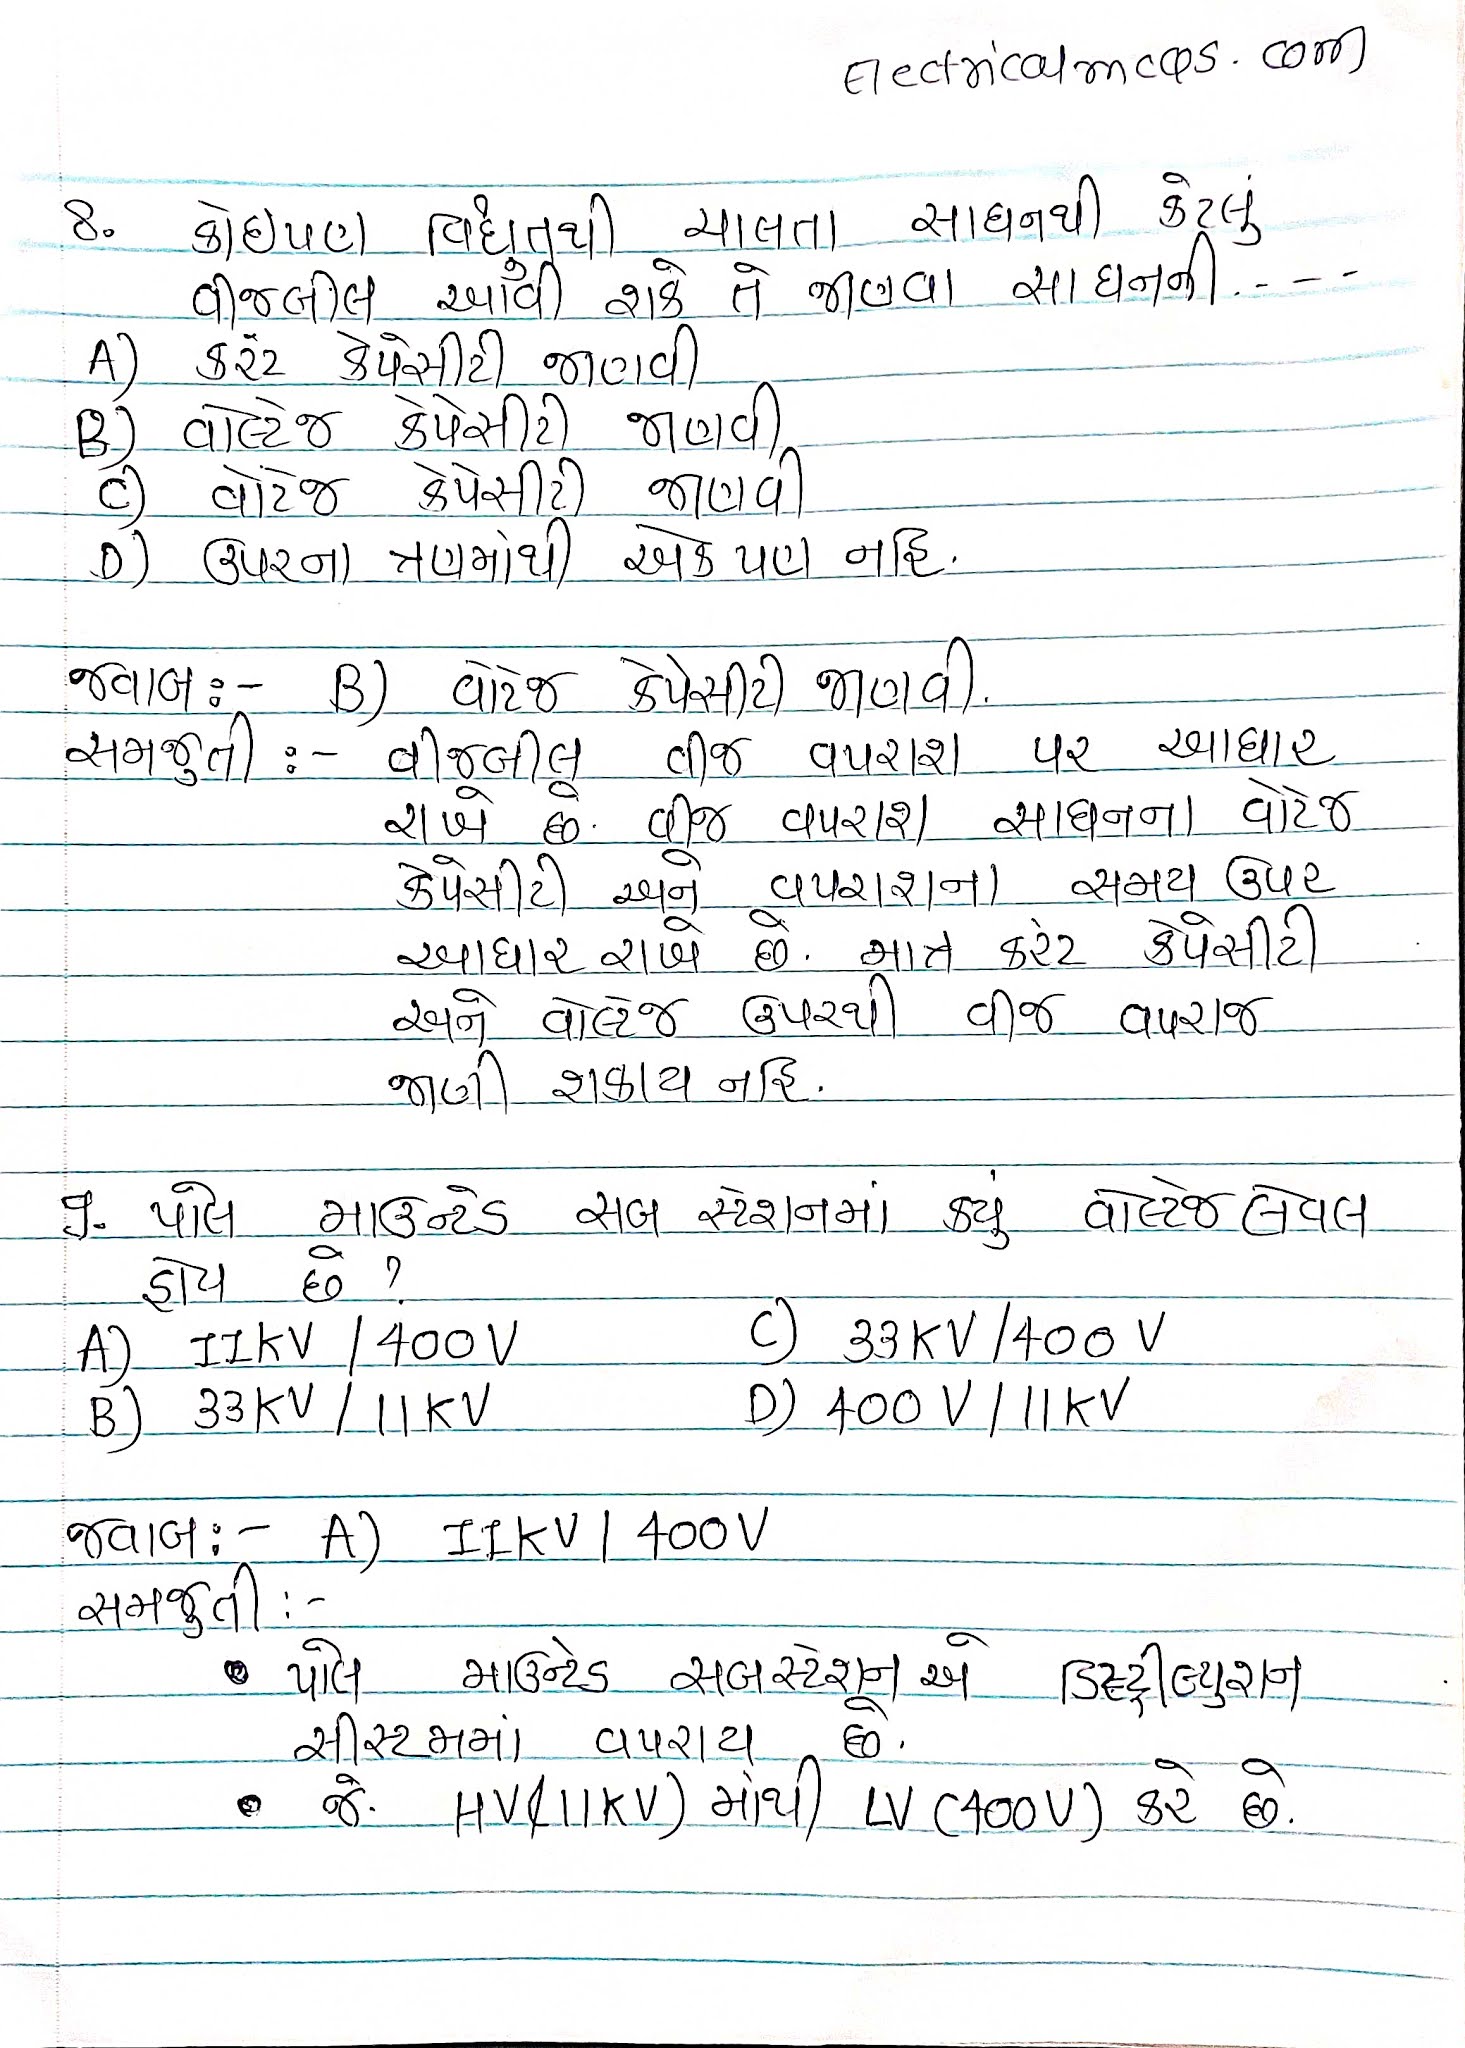 Electricalmcqs.com
8. કોઇપણ વિદ્યુતથી ચાલતા સાધનથી કેટલું
વીજબીલ આવી શકે તે જાણવા સાધનની.---
A) કરંટ કેપેસીટી જાણવી
B) વોલ્ટેજ કેપેસીટી જાણવી
C) વોટેજ કેપેસીટી જાણવી
D) ઉપરના ત્રણમાંથી એક પણ નહિ.
જવાબ:- B) વોટેજ કેપેસીટી જાણવી.
સમજુતી :- વીજબીલ વીજ વપરાશ પર આધાર
રાખે છે. વીજ વપરાશ સાધનના વોટેજ
કેપેસીટી અને વપરાશના સમય ઉપર
આધાર રાખે છે. માત્ર કરંટ કેપેસીટી
અને વોલ્ટેજ ઉપરથી વીજ વપરાજ
જાણી શકાય નહિ.
9. પોલ માઉન્ટેડ સબ સ્ટેશનમાં કયું વોલ્ટેજ લેવલ
હોય છે ?
A) 11KV / 400V C) 33KV/400V
B) 33KV / 11KV D) 400V/11KV
જવાબ:- A) 11KV / 400V
સમજુતી :-
• પોલ માઉન્ટેડ સબસ્ટેશન એ ડિસ્ટ્રીબ્યુશન
સીસ્ટમમાં વપરાય છે.
• જે. HV(11KV) માંથી LV (400V) કરે છે.